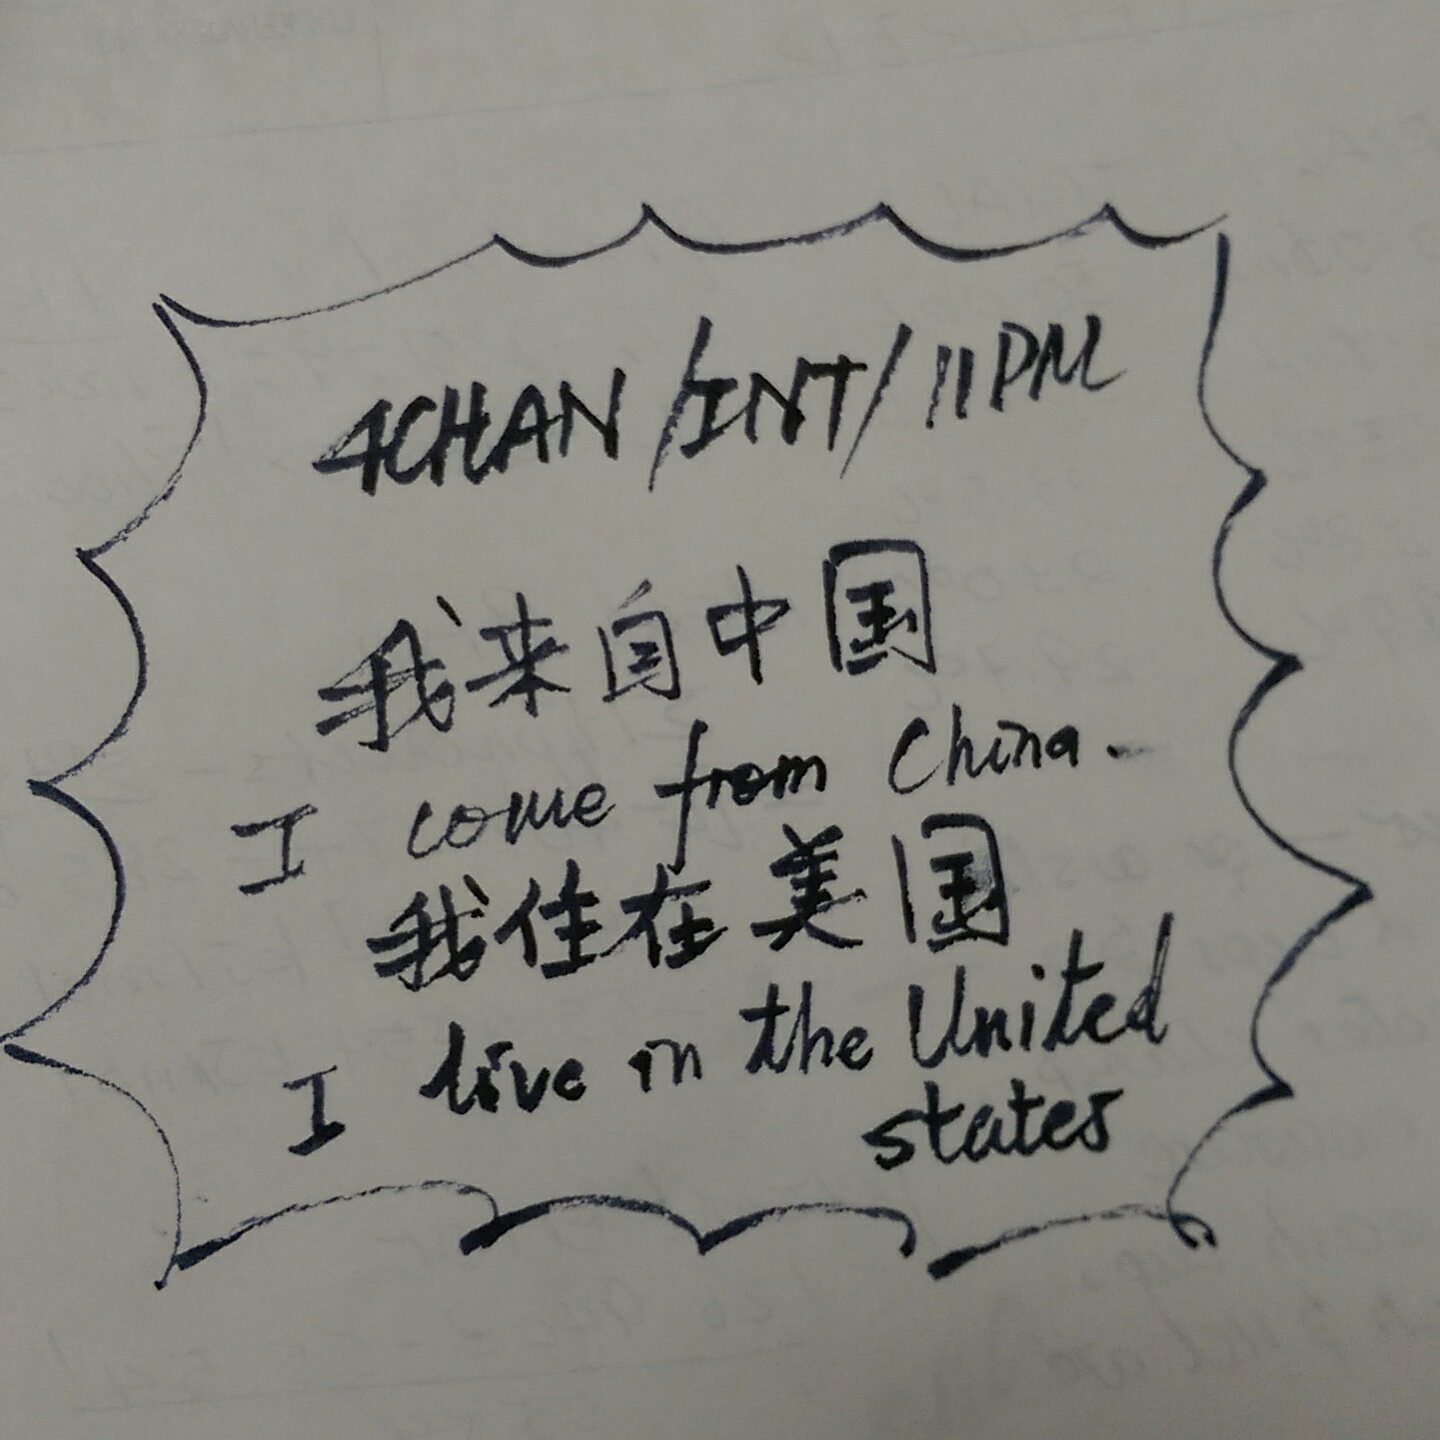 4CHAN /INT/ 11PM
我来自中国
I come from China.
我住在美国
I live in the United
states